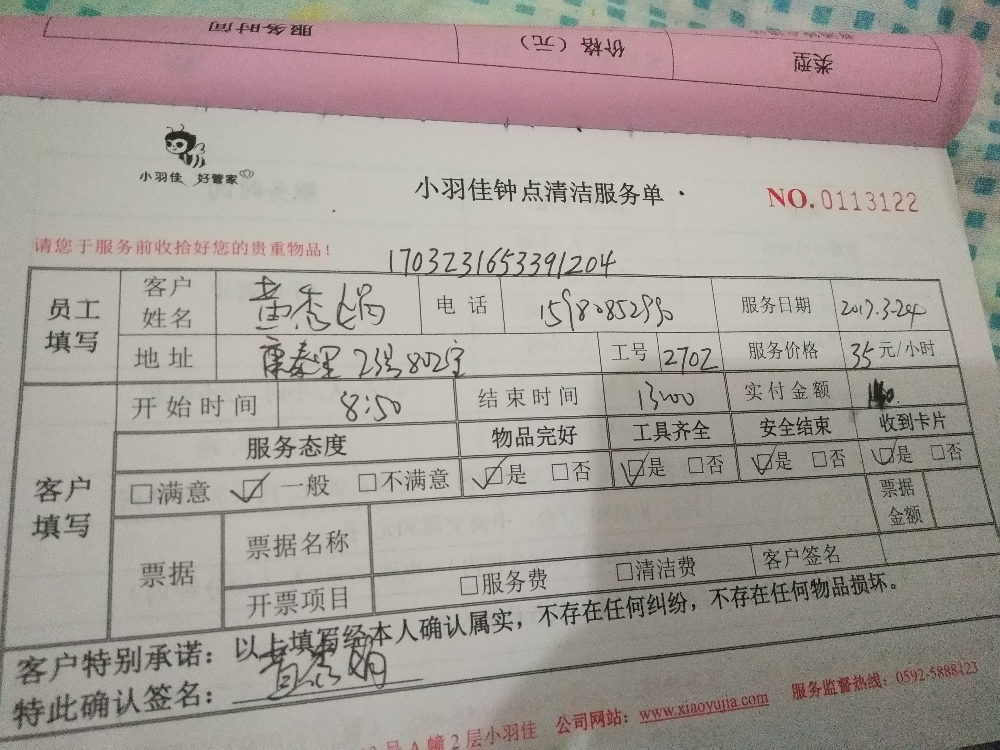 服务时间 价格（元） 类型
小羽佳 好管家
小羽佳钟点清洁服务单
NO.0113122
请您于服务前收拾好您的贵重物品！
1703231653391204
员工填写 客户姓名 黄秀娟 电话 15980852990 服务日期 2017.3-24
地址 康泰里23号802室 工号 2702 服务价格 35元/小时
客户填写 开始时间 8:50 结束时间 13:00 实付金额
服务态度 物品完好 工具齐全 安全结束 收到卡片
□满意 ☑一般 □不满意 ☑是 □否 ☑是 □否 ☑是 □否 ☑是 □否
票据 票据名称 票据金额
开票项目 □服务费 □清洁费 客户签名
客户特别承诺：以上填写经本人确认属实，不存在任何纠纷，不存在任何物品损坏。
特此确认签名：黄秀娟
号A幢2层小羽佳 公司网站：www.xiaoyujia.com 服务监督热线：0592-5888123